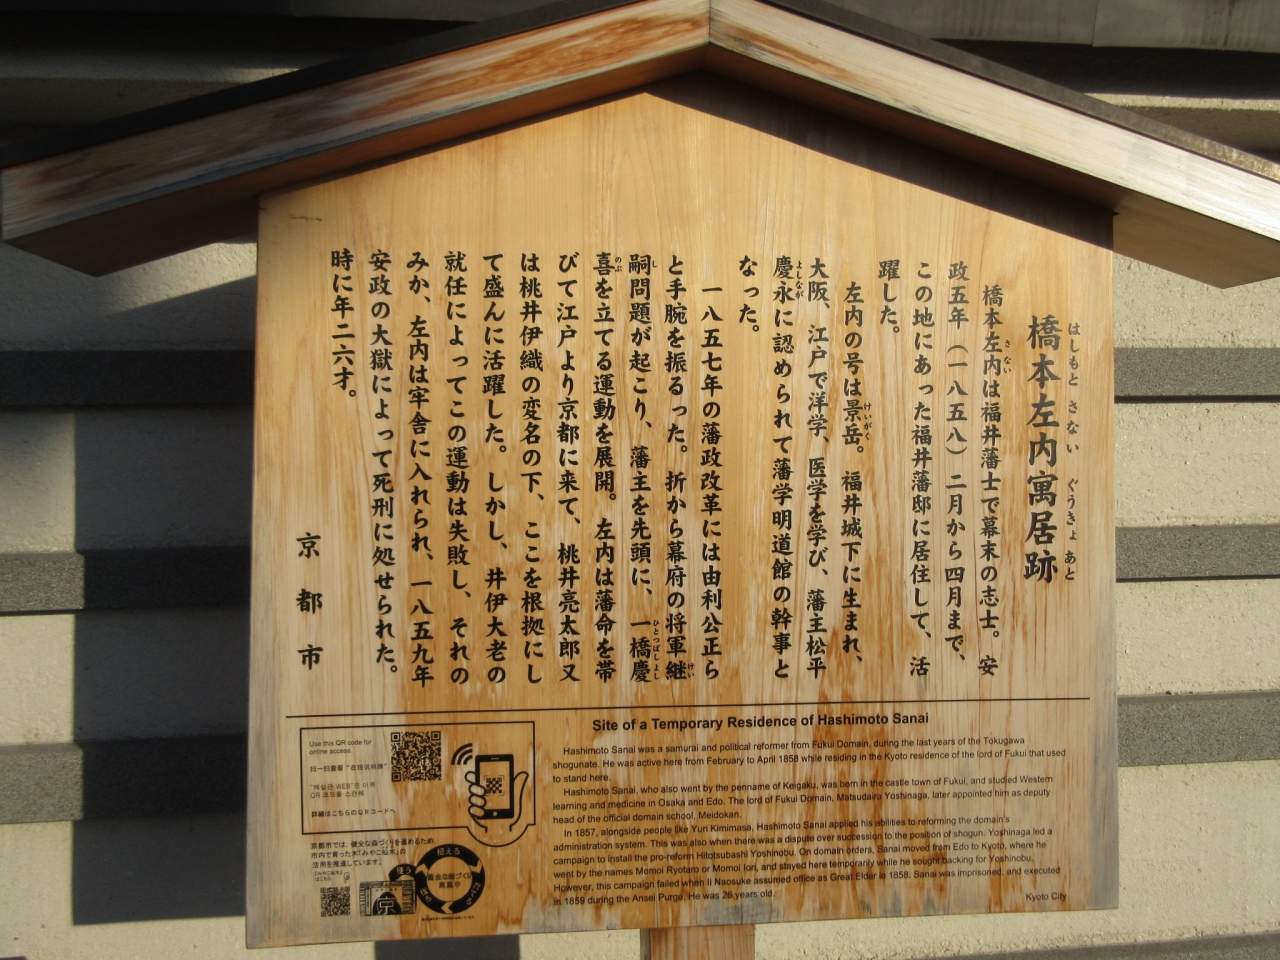 橋本左内寓居跡
はしもと さない ぐうきょ あと
橋本左内は福井藩士で幕末の志士。安
さない
政五年（一八五八）二月から四月まで、
この地にあった福井藩邸に居住して、活
躍した。
左内の号は景岳。福井城下に生まれ、
けいがく
大阪、江戸で洋学、医学を学び、藩主松平
慶永に認められて藩学明道館の幹事と
よしなが
なった。
一八五七年の藩政改革には由利公正ら
と手腕を振るった。折から幕府の将軍継
けい
嗣問題が起こり、藩主を先頭に、一橋慶
し ひとつばしよし
喜を立てる運動を展開。左内は藩命を帯
のぶ
びて江戸より京都に来て、桃井亮太郎又
は桃井伊織の変名の下、ここを根拠にし
て盛んに活躍した。しかし、井伊大老の
就任によってこの運動は失敗し、それの
みか、左内は牢舎に入れられ、一八五九年
安政の大獄によって死刑に処せられた。
時に年二六才。
京都市
Site of a Temporary Residence of Hashimoto Sanai
Hashimoto Sanai was a samurai and political reformer from Fukui Domain, during the last years of the Tokugawa
shogunate. He was active here from February to April 1858 while residing in the Kyoto residence of the lord of Fukui that used
to stand here.
Hashimoto Sanai, who also went by the penname of Keigaku, was born in the castle town of Fukui, and studied Western
learning and medicine in Osaka and Edo. The lord of Fukui Domain, Matsudaira Yoshinaga, later appointed him as deputy
head of the official domain school, Meidokan.
In 1857, alongside people like Yuri Kimimasa, Hashimoto Sanai applied his abilities to reforming the domain's
administration system. This was also when there was a dispute over succession to the position of shogun. Yoshinaga led a
campaign to install the pro-reform Hitotsubashi Yoshinobu. On domain orders, Sanai moved from Edo to Kyoto, where he
went by the names Momoi Ryotaro or Momoi Iori, and stayed here temporarily while he sought backing for Yoshinobu.
However, this campaign failed when Ii Naosuke assumed office as Great Elder in 1858. Sanai was imprisoned, and executed
in 1859 during the Ansei Purge. He was 26 years old.
Kyoto City
Use this QR code for
online access.
扫一扫查看"在线说明牌"
"해설판 WEB"은 이쪽
QR 코드를 스캔해
詳細はこちらのQRコードへ
京都市では、健全な森づくりを進めるため、
市内で育った木「みやこ杣木」の
活用を推進しています。
植える
使う
健全な森づくり